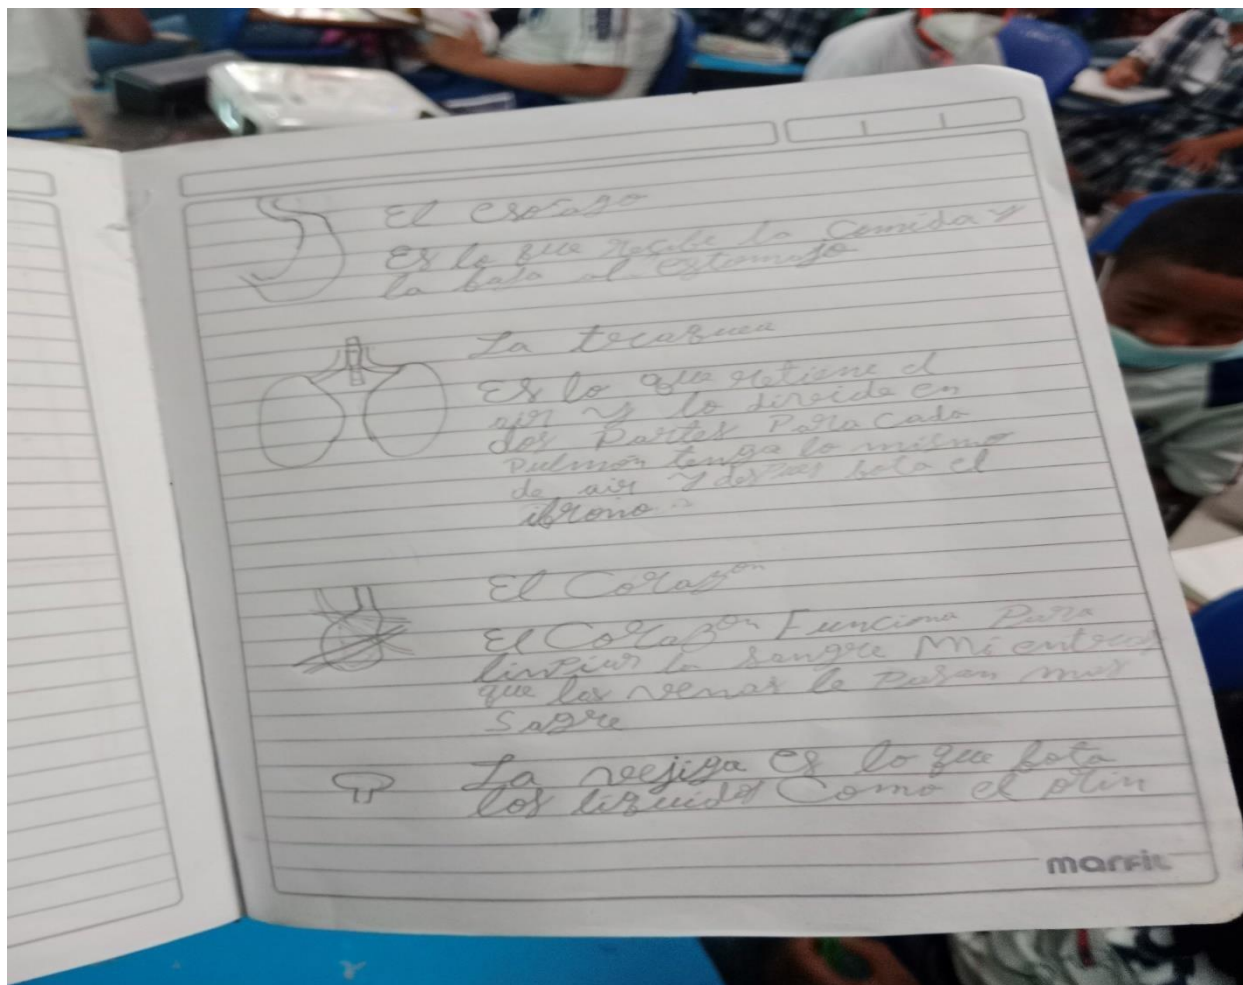 El esofago
Es lo que recibe la comida y
la baja al estomajo
La traquea
Es lo que retiene el
air y lo diveide en
dos Partes Para cada
Pulmon tenga lo mismo
de air y despues bota el
El Corazon
El Corazon Funciona Para
linpiar la sangre Mientras
que las venas le Pasan mas
Sagre
La vejiga es lo que bota
los liquidos Como el orin
marfil